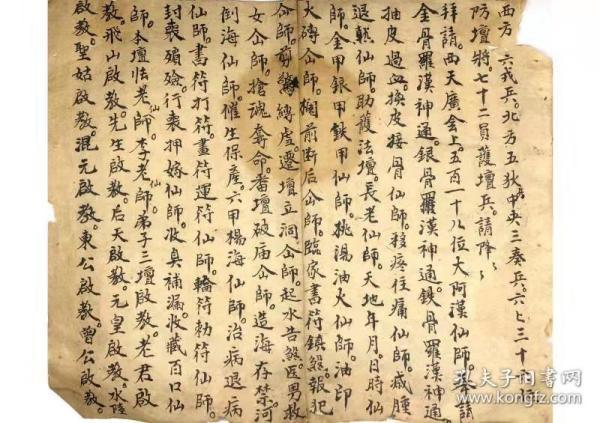 西方六戎兵。北方五狄兵中央三秦兵。六七三十四位
防壇將七十二員護壇兵。請降〻
拜請。西天廣會上。五百一十八位大阿漢仙師。奉請
金骨羅漢神通。銀骨羅漢神通。鉄骨羅漢神通。
抽皮過血。換皮接骨仙師。移疼住痛仙師。减腫
退熱仙師。助護法壇。長老仙師。天地年月日時仙
師。金甲銀甲鉄甲仙師。桃湯油火仙師。油印
火磚仚師。楜前断后仚師。臨家書符鎮煞。報犯
仚師。剪縛虛。遷壇立洞仚師。起水告煞。医男救
女仚師。搶魂奪命。番壇破庙仚師。造海存禁河
倒海仙師。催生保產。六甲楊海仙師治病退病
仙師。書符打符。畫符運符仙師。輪符勅符仙師。
封喪殯殮。行喪押嫁仙師。收臭補漏。收藏百口仙
師。本壇怯老仙師。李老仙師。弟子三壇啟教。老君啟
教。飛山啟教。先生啟教。后天啟教。元皇啟教。水陸
啟教。聖姑啟教。混元啟教。東公啟教。曾公啟教。
孔夫子旧書网
www.kongfz.com